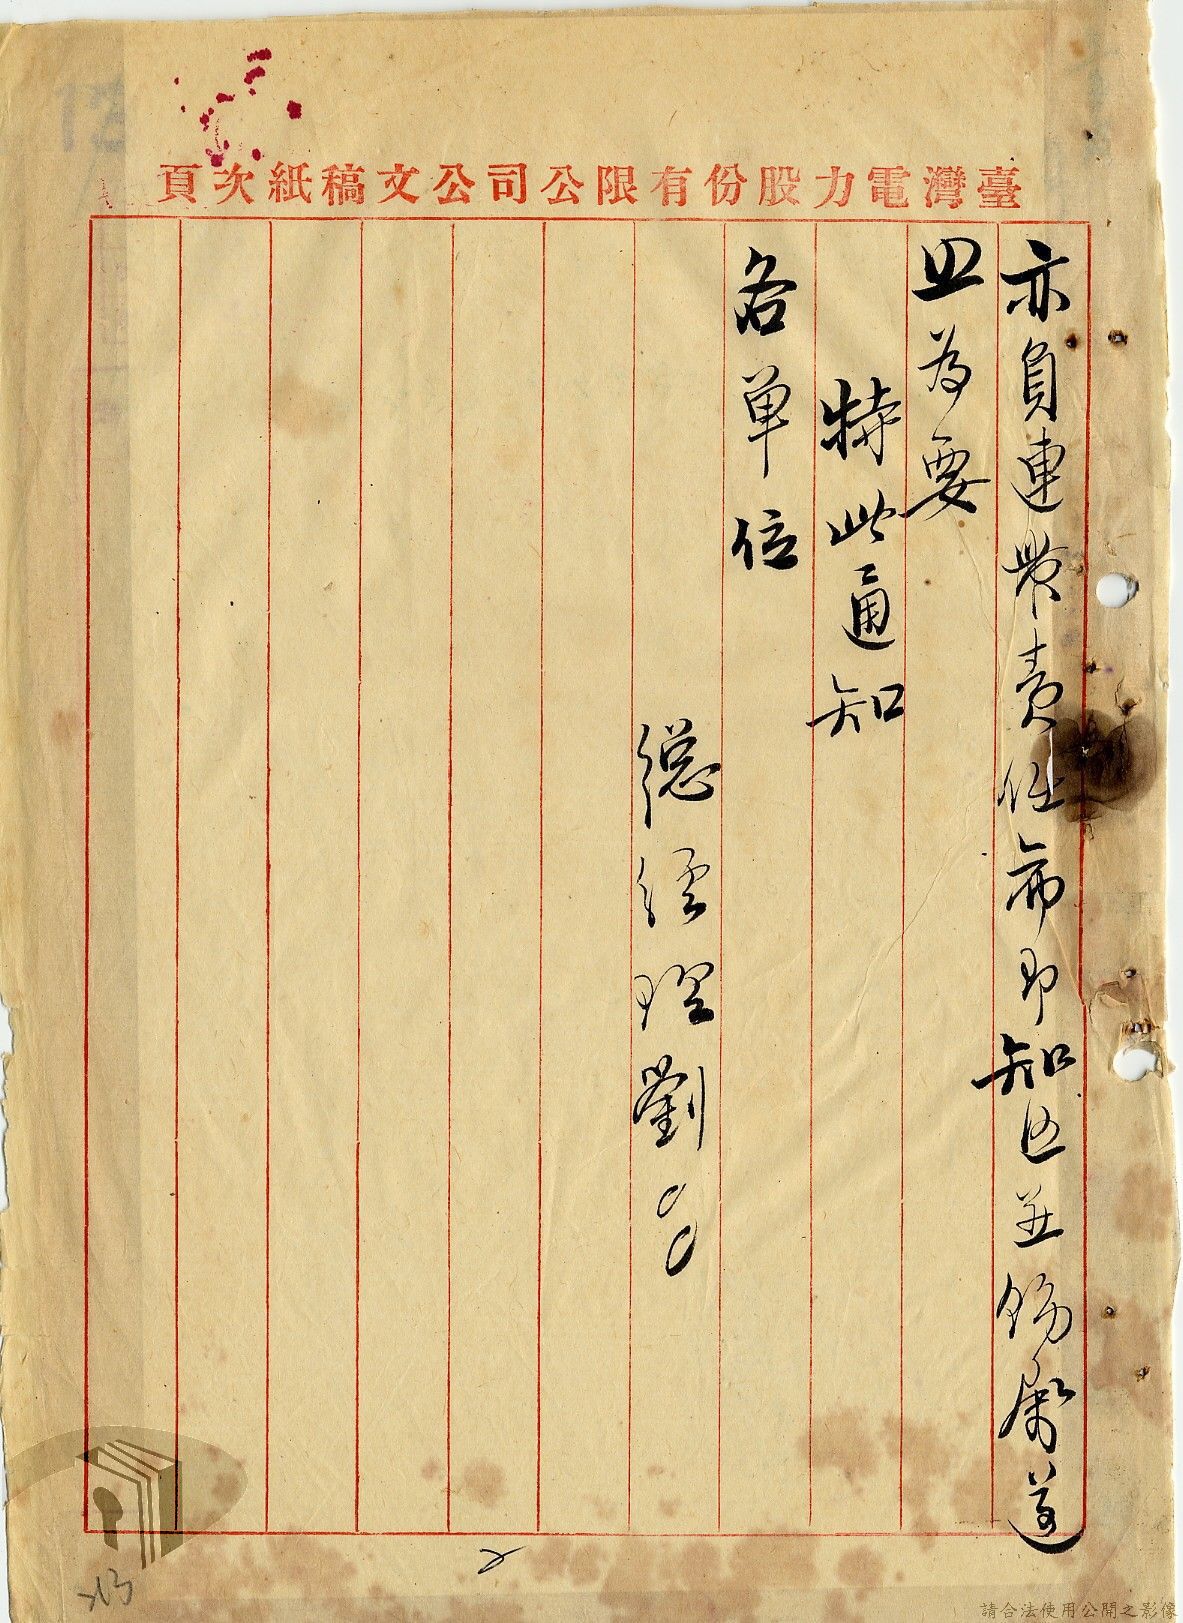 臺灣電力股份有限公司公文稿紙次頁
亦負連帶責任希即知照並飭屬遵
照為要
特此通知
各單位
總經理劉○○
2
請合法使用公開之影像